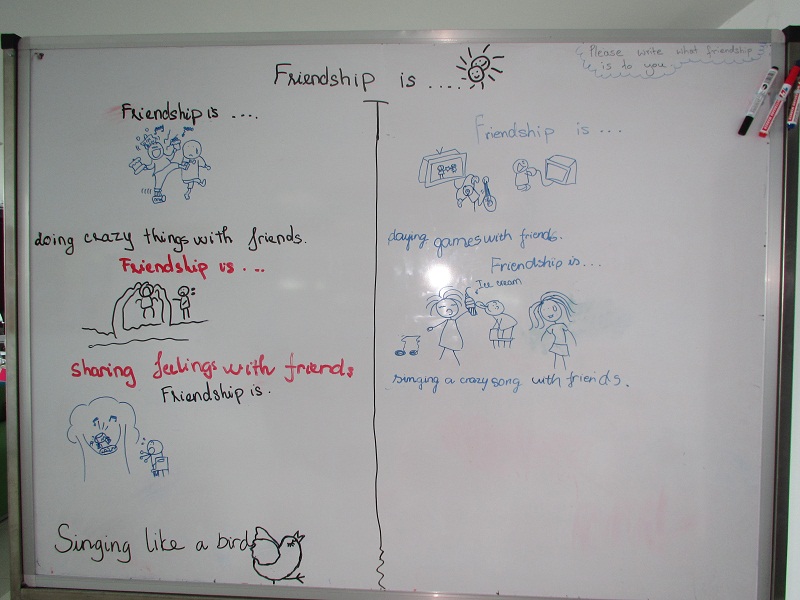 Friendship is ....
Please write what friendship
is to you
Friendship is ....
doing crazy things with friends.
Friendship is ...
sharing feelings with friends
Friendship is .
Singing like a bird
Friendship is ...
playing games with friends.
Friendship is...
Ice cream
singing a crazy song with friends.